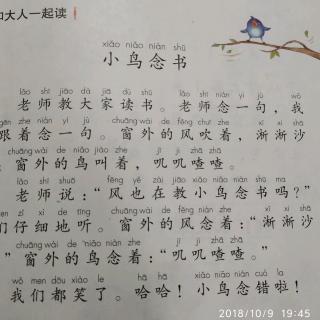 和大人一起读
xiǎo niǎo niàn shū
小鸟念书
lǎo shī jiāo dà jiā dú shū lǎo shī niàn yí jù wǒ
老师教大家读书。老师念一句，我
gēn zhe niàn yí jù chuāng wài de fēng chuī zhe
跟着念一句。窗外的风吹着，渐渐沙
chuāng wài de niǎo jiào zhe jī jī zhā zhā
窗外的鸟叫着，叽叽喳喳。
lǎo shī shuō fēng yě zài jiāo xiǎo niǎo niàn shū ma
老师说：“风也在教小鸟念书吗？”
men zǐ xì de tīng chuāng wài de fēng niàn zhe
们仔细地听。窗外的风念着：“渐渐沙
chuāng wài de niǎo niàn zhe jī jī zhā zhā
”窗外的鸟念着：“叽叽喳喳。”
wǒ men dōu xiào le hā hā xiǎo niǎo niàn cuò la
我们都笑了。哈哈！小鸟念错啦！
2018/10/9 19:45